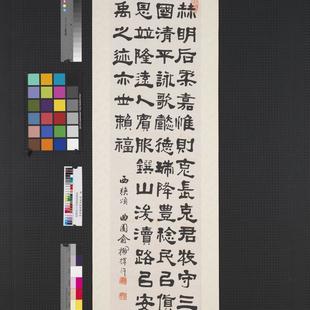 赫明后柔嘉惟則克長克君牧守三
國清平詠歌懿德瑞降豐稔民㠯貨
恩竝隆遠人賓服鐫山浚瀆路㠯安
禹之迹亦世賴福
西狹頌 曲園俞樾